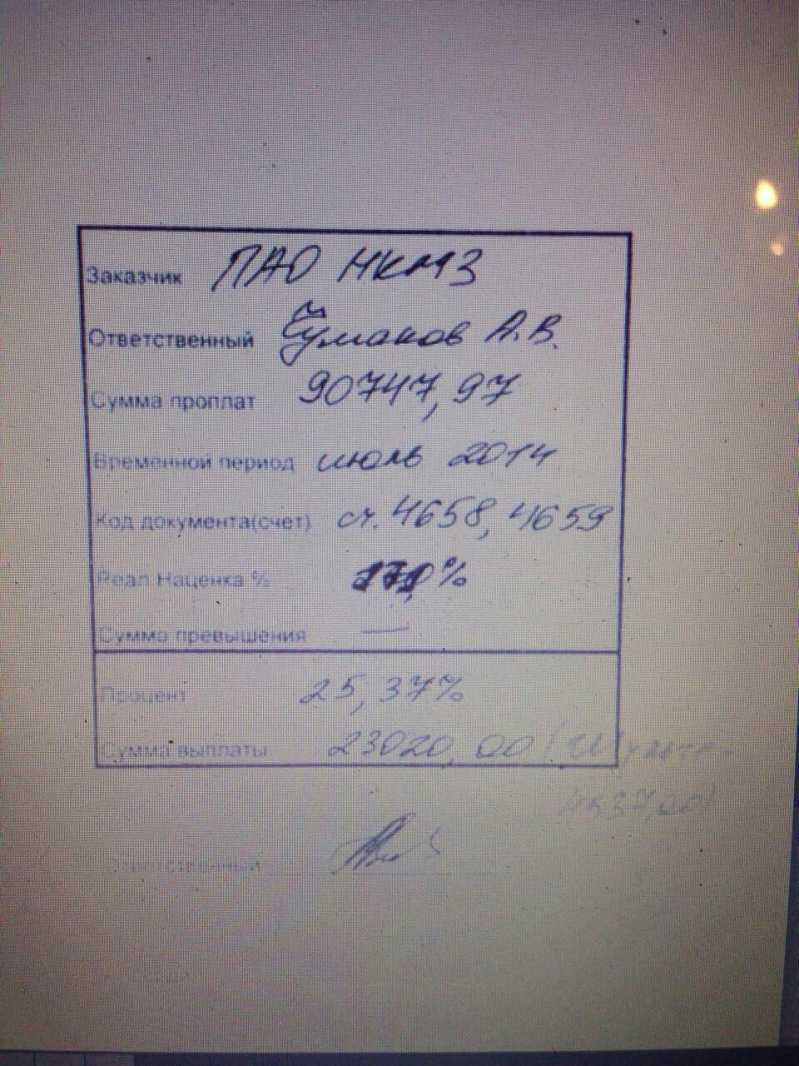 Заказчик ПАО НКМЗ
Ответственный Чумаков А.В.
Сумма проплат 90747,97
Временной период июль 2014
Код документа(счет) сч. 4658, 4659
Реал Наценка % %
Сумма превышения —
Процент 25,37%
Сумма выплаты 23020,00 (
Ответственный